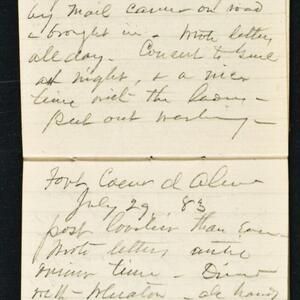 by mail came on road
& brought in. Wrote letters
all day. Concert to Genl
at night, & a nice
time with the ladies.
Put out washing.
Fort Coeur d Alene
July 29 83
post lovelier than ever
Wrote letters entire
time. Dined
with Wheaton